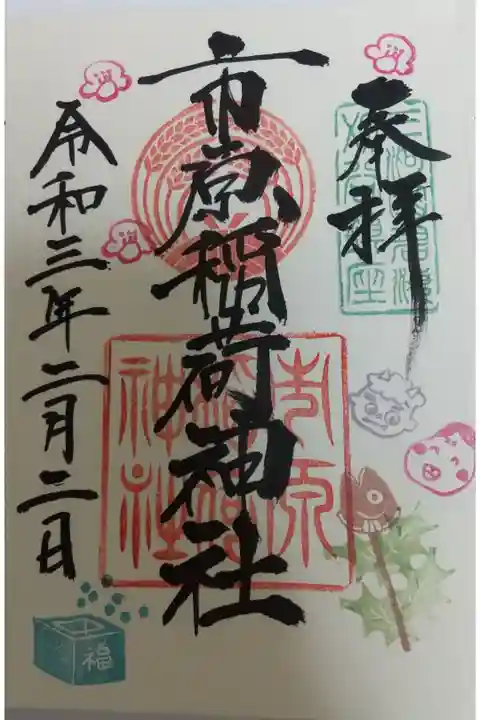 奉拝
市原稲荷神社
市原
稲荷
神社
令和三年二月二日
福